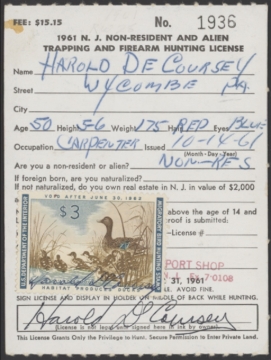 FEE: $15.15 No. 1936
1961 N. J. NON-RESIDENT AND ALIEN
TRAPPING AND FIREARM HUNTING LICENSE
Name HAROLD DE COURSEY
Street WYCOMBE PA.
City
Age 50 Height 5-6 Weight 175 Hair RED Eyes BLUE
Occupation CARPENTER Issued 10-14-61
(Month-Day-Year)
Are you a non-resident or alien? NON-RES
If foreign born, are you naturalized?
If not naturalized, do you own real estate in N. J. in value of $2,000
VOID AFTER JUNE 30, 1962
$3
above the age of 14 and
roof is submitted.
License #
PORT SHOP
31, 1961
U. S. AVOID FINE.
SIGN LICENSE AND DISPLAY IN HOLDER ON MIDDLE OF BACK WHILE HUNTING.
Harold DeCoursey
(License is not legal unless signed here in ink by owner)
This License Grants Only the Privilege to Hunt. Secure Permission to Enter Private Land.